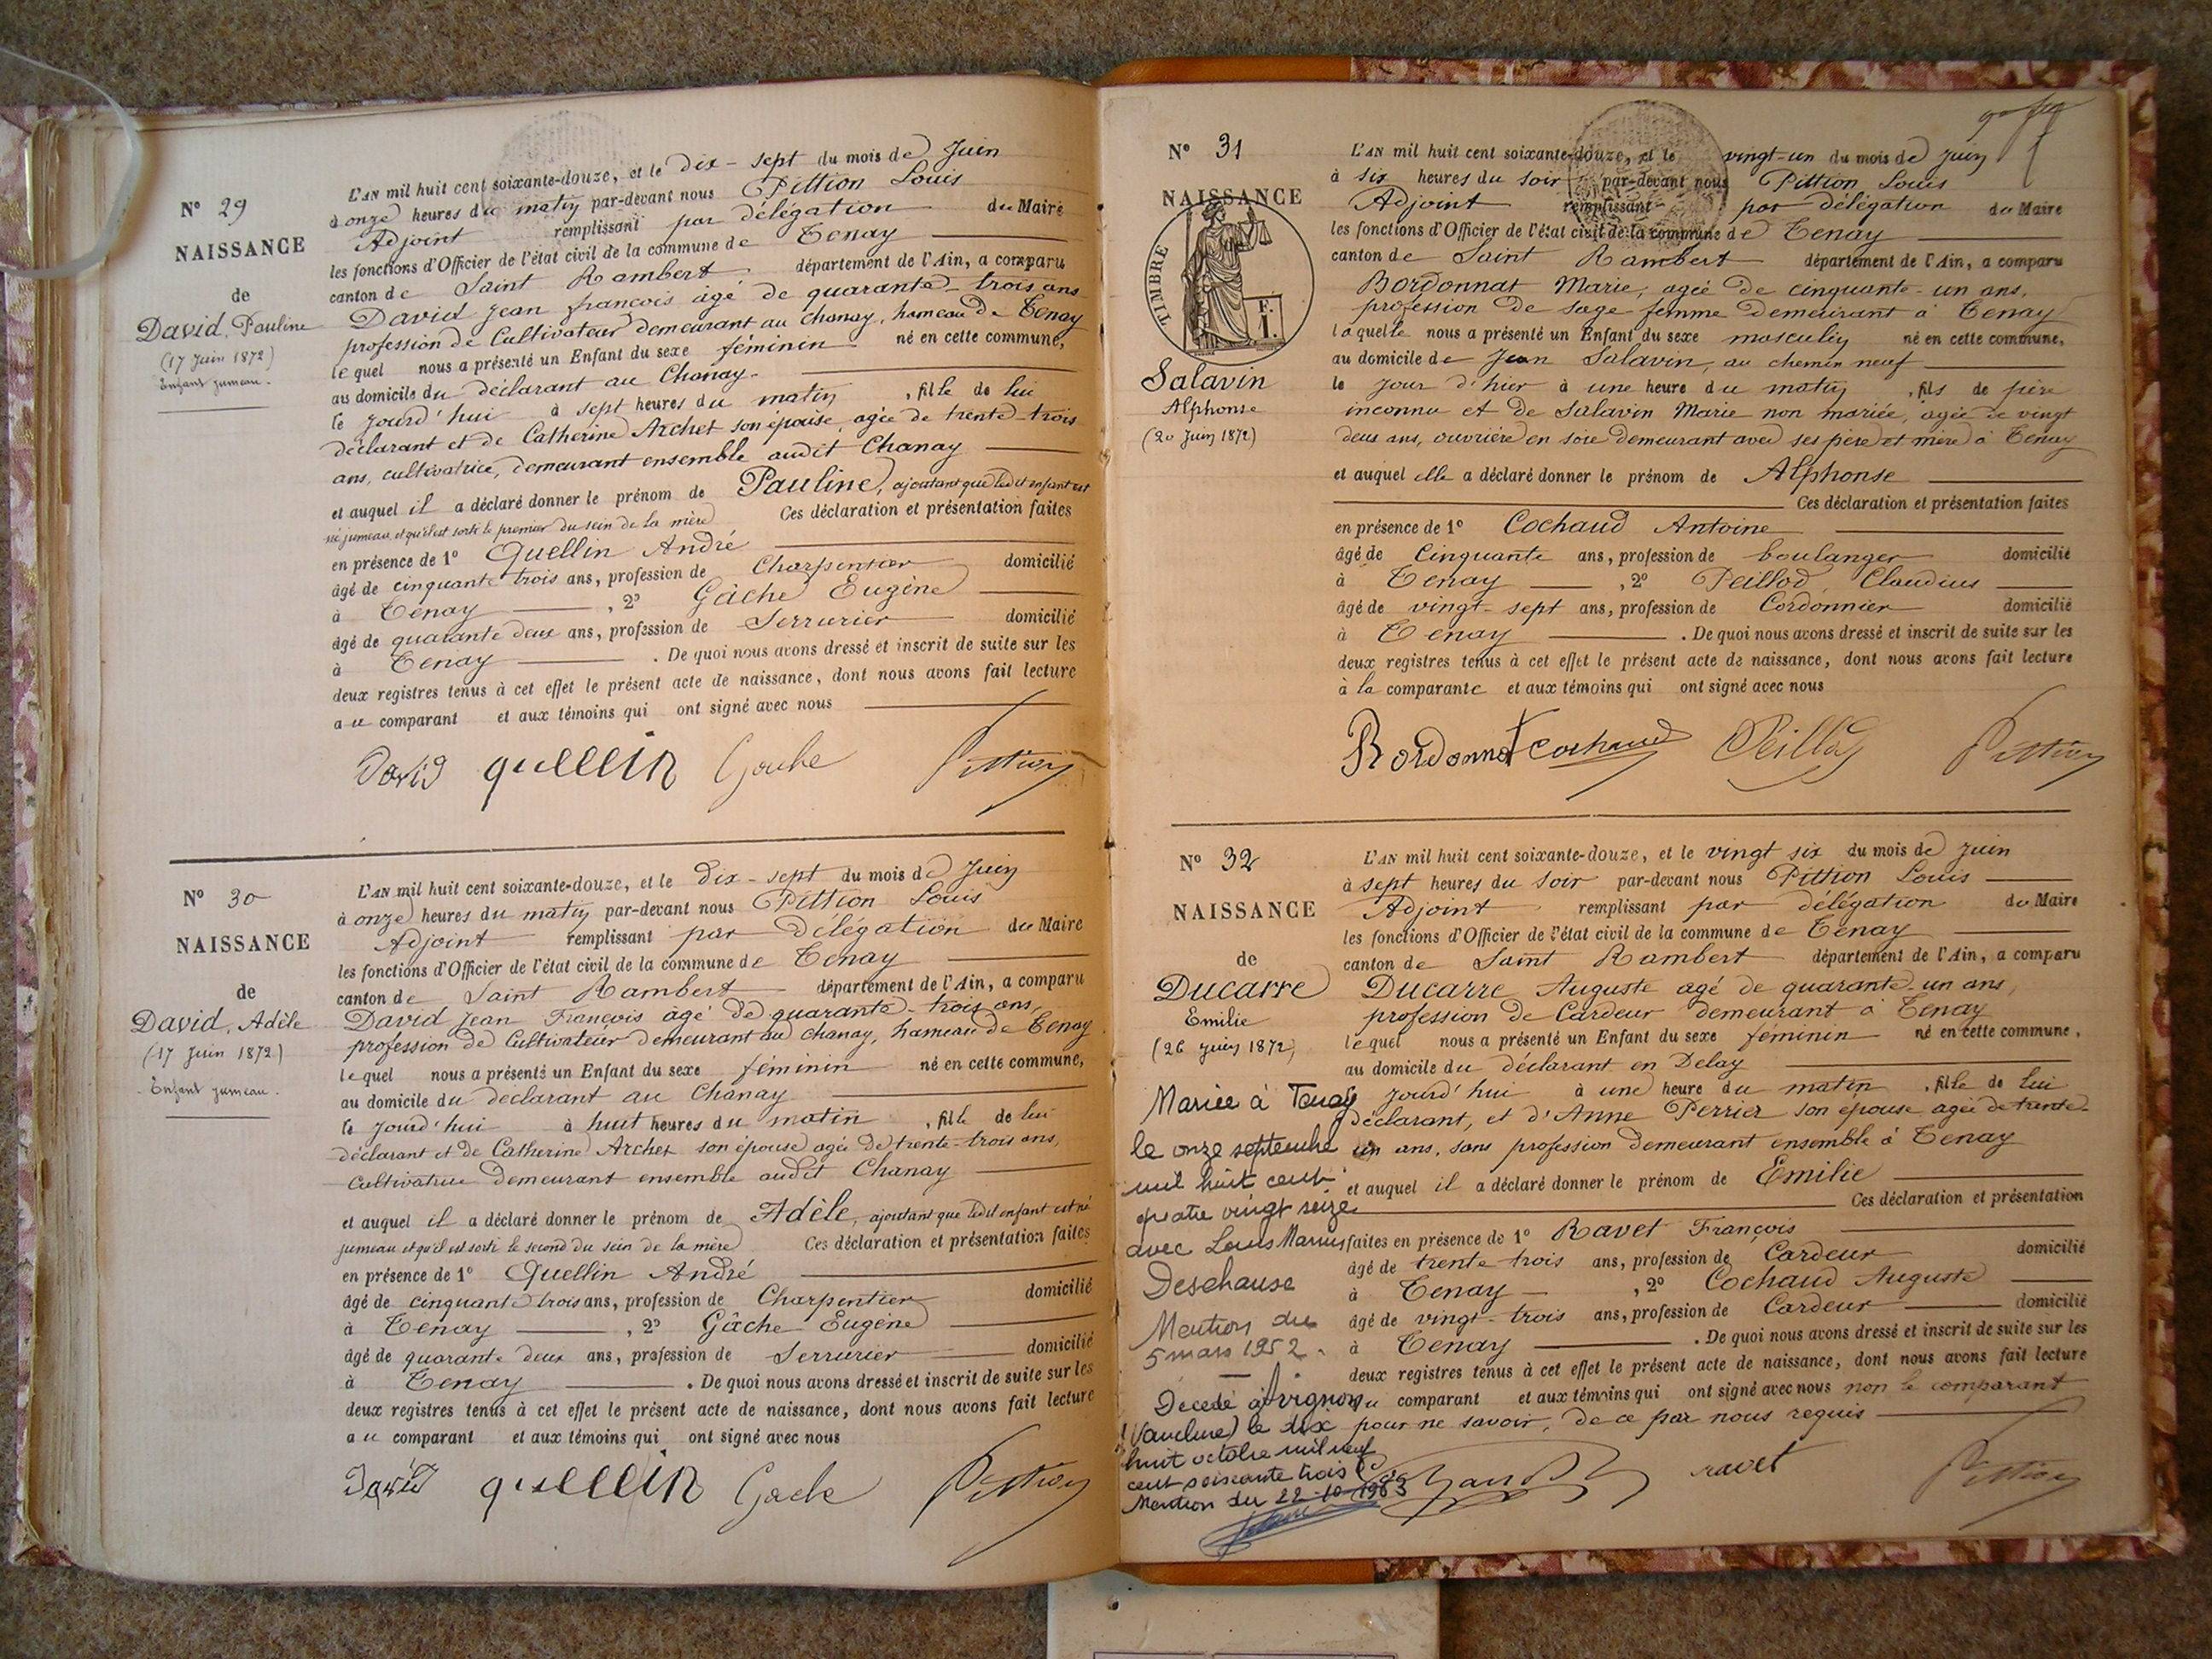 N° 29
NAISSANCE
de
David, Pauline
(17 Juin 1872)
Enfant jumeau.
L'AN mil huit cent soixante-douze, et le dix-sept du mois de Juin
à onze heures du matin par-devant nous Pittion Louis
Adjoint remplissant par délégation du Maire
les fonctions d'Officier de l'état civil de la commune de Tenay
canton de Saint Rambert département de l'Ain, a comparu
David Jean françois âgé de quarante-trois ans
profession de Cultivateur demeurant au Chanay, hameau de Tenay
lequel nous a présenté un Enfant du sexe féminin né en cette commune,
au domicile du déclarant au Chanay
le jourd'hui à sept heures du matin, fille de lui
déclarant et de Catherine Archet son épouse, agée de trente-trois
ans, cultivatrice, demeurant ensemble audit Chanay
et auquel il a déclaré donner le prénom de Pauline, ajoutant que ledit enfant est
né jumeau et qu'il est sorti le premier du sein de la mère Ces déclaration et présentation faites
en présence de 1° Quellin André
âgé de cinquante trois ans, profession de Charpentier domicilié
à Tenay, 2° Gâche Eugène
âgé de quarante deux ans, profession de Serrurier domicilié
à Tenay. De quoi nous avons dressé et inscrit de suite sur les
deux registres tenus à cet effet le présent acte de naissance, dont nous avons fait lecture
au comparant et aux témoins qui ont signé avec nous
David quellin Gache Pittion
N° 30
NAISSANCE
de
David, Adèle
(17 Juin 1872)
Enfant jumeau.
L'AN mil huit cent soixante-douze, et le dix-sept du mois de Juin
à onze heures du matin par-devant nous Pittion Louis
Adjoint remplissant par délégation du Maire
les fonctions d'Officier de l'état civil de la commune de Tenay
canton de Saint Rambert département de l'Ain, a comparu
David Jean François âgé de quarante-trois ans,
profession de Cultivateur demeurant au Chanay, hameau de Tenay
lequel nous a présenté un Enfant du sexe féminin né en cette commune,
au domicile du déclarant au Chanay
le jourd'hui à huit heures du matin, fille de lui
déclarant et de Catherine Archet son épouse agée de trente-trois ans,
cultivatrice demeurant ensemble audit Chanay
et auquel il a déclaré donner le prénom de Adèle, ajoutant que ledit enfant est né
jumeau et qu'il est sorti le second du sein de la mère Ces déclaration et présentation faites
en présence de 1° Quellin André
âgé de cinquante trois ans, profession de Charpentier domicilié
à Tenay, 2° Gâche Eugène
âgé de quarante deux ans, profession de Serrurier domicilié
à Tenay. De quoi nous avons dressé et inscrit de suite sur les
deux registres tenus à cet effet le présent acte de naissance, dont nous avons fait lecture
au comparant et aux témoins qui ont signé avec nous
David quellin Gache Pittion
N° 31
NAISSANCE
TIMBRE
F.
1.
Salavin
Alphonse
(20 Juin 1872)
L'AN mil huit cent soixante-douze, et le vingt-un du mois de Juin
à six heures du soir par-devant nous Pittion Louis
Adjoint remplissant par délégation du Maire
les fonctions d'Officier de l'état civil de la commune de Tenay
canton de Saint Rambert département de l'Ain, a comparu
Bordonnat Marie, agée de cinquante-un ans,
profession de sage femme demeurant à Tenay
laquelle nous a présenté un Enfant du sexe masculin né en cette commune,
au domicile de Jean Salavin, au chemin neuf
le jour d'hier à une heure du matin, fils de père
inconnu et de Salavin Marie non mariée, agée de vingt
deux ans, ouvrière en soie demeurant avec ses père et mère à Tenay
et auquel elle a déclaré donner le prénom de Alphonse
Ces déclaration et présentation faites
en présence de 1° Cochaud Antoine
âgé de cinquante ans, profession de boulanger domicilié
à Tenay, 2° Peillod Claudius
âgé de vingt-sept ans, profession de Cordonnier domicilié
à Tenay. De quoi nous avons dressé et inscrit de suite sur les
deux registres tenus à cet effet le présent acte de naissance, dont nous avons fait lecture
à la comparante et aux témoins qui ont signé avec nous
Bordonnat Cochaud Peillod Pittion
N° 32
NAISSANCE
de
Ducarre
Emilie
(26 Juin 1872)
Mariée à Tenay
le onze septembre
mil huit cent
quatre vingt seize
avec Louis Marius
Deschause
Mention du
5 mars 1952.
Décédé à Avignon
(Vaucluse) le dix
huit octobre mil neuf
cent soixante trois
Mention du 22-10-1963
L'AN mil huit cent soixante-douze, et le vingt six du mois de juin
à sept heures du soir par-devant nous Pittion Louis
Adjoint remplissant par délégation du Maire
les fonctions d'Officier de l'état civil de la commune de Tenay
canton de Saint Rambert département de l'Ain, a comparu
Ducarre Auguste agé de quarante-un ans,
profession de Cardeur demeurant à Tenay
lequel nous a présenté un Enfant du sexe féminin né en cette commune,
au domicile du déclarant en Delay
jourd'hui à une heure du matin, fille de lui
déclarant, et d'Anne Perrier son épouse agée de trente-
un ans, sans profession demeurant ensemble à Tenay
et auquel il a déclaré donner le prénom de Emilie
Ces déclaration et présentation
faites en présence de 1° Ravet François
âgé de trente trois ans, profession de Cardeur domicilié
à Tenay, 2° Cochaud Auguste
âgé de vingt-trois ans, profession de Cardeur domicilié
à Tenay. De quoi nous avons dressé et inscrit de suite sur les
deux registres tenus à cet effet le présent acte de naissance, dont nous avons fait lecture
au comparant et aux témoins qui ont signé avec nous non le comparant
pour ne savoir, de ce par nous requis
ravet Pittion